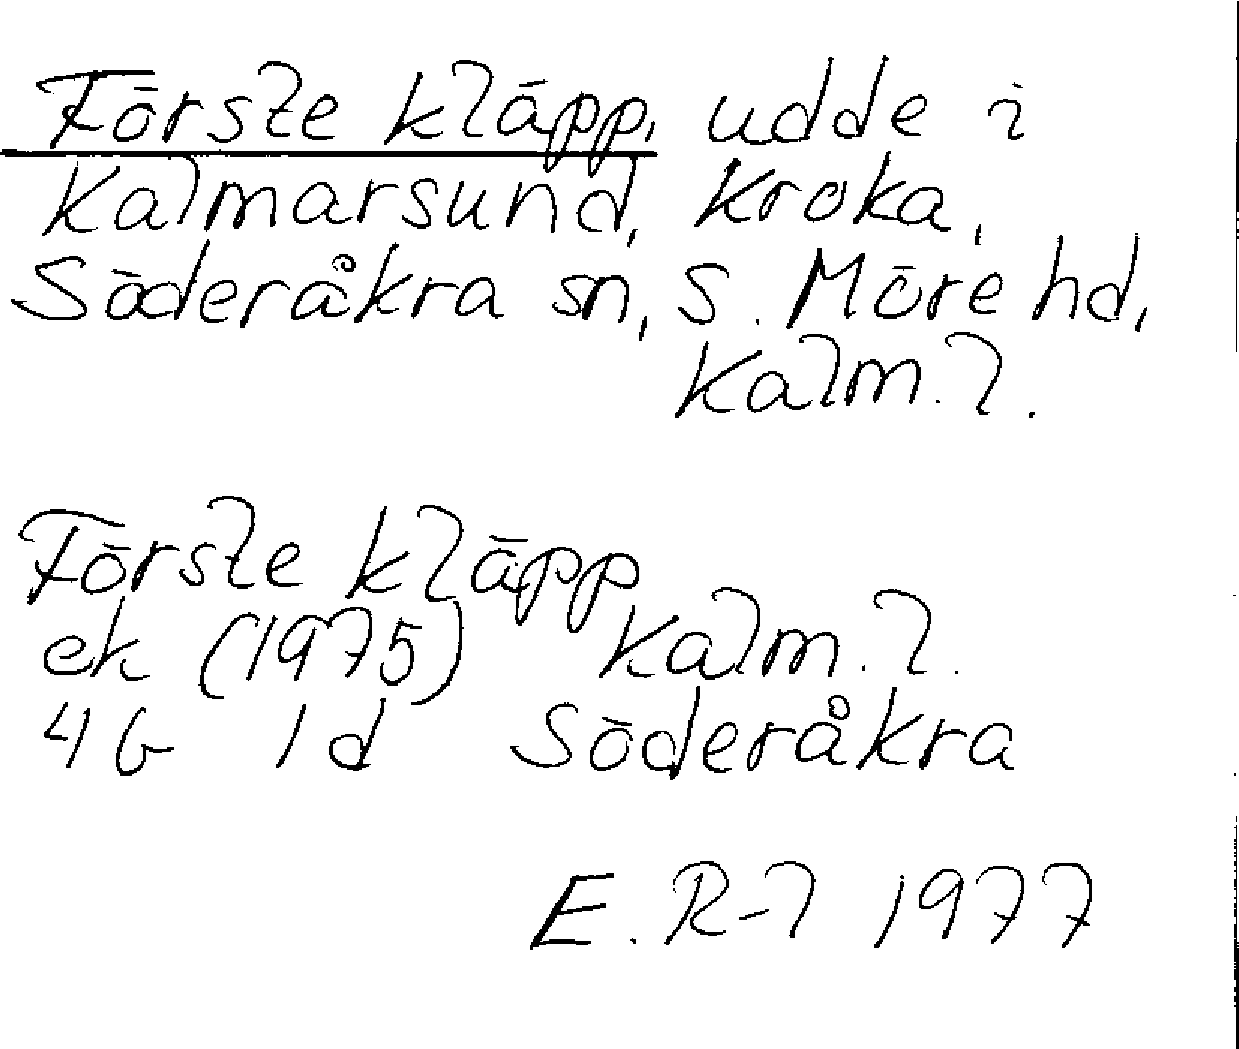 Förste kläpp, udde i
Kalmarsund, Kroka,
Söderåkra sn, S. Möre hd,
Kalm. l.
Förste kläpp
ek (1975) Kalm. l.
4 G 1 d Söderåkra
E. R-l 1977